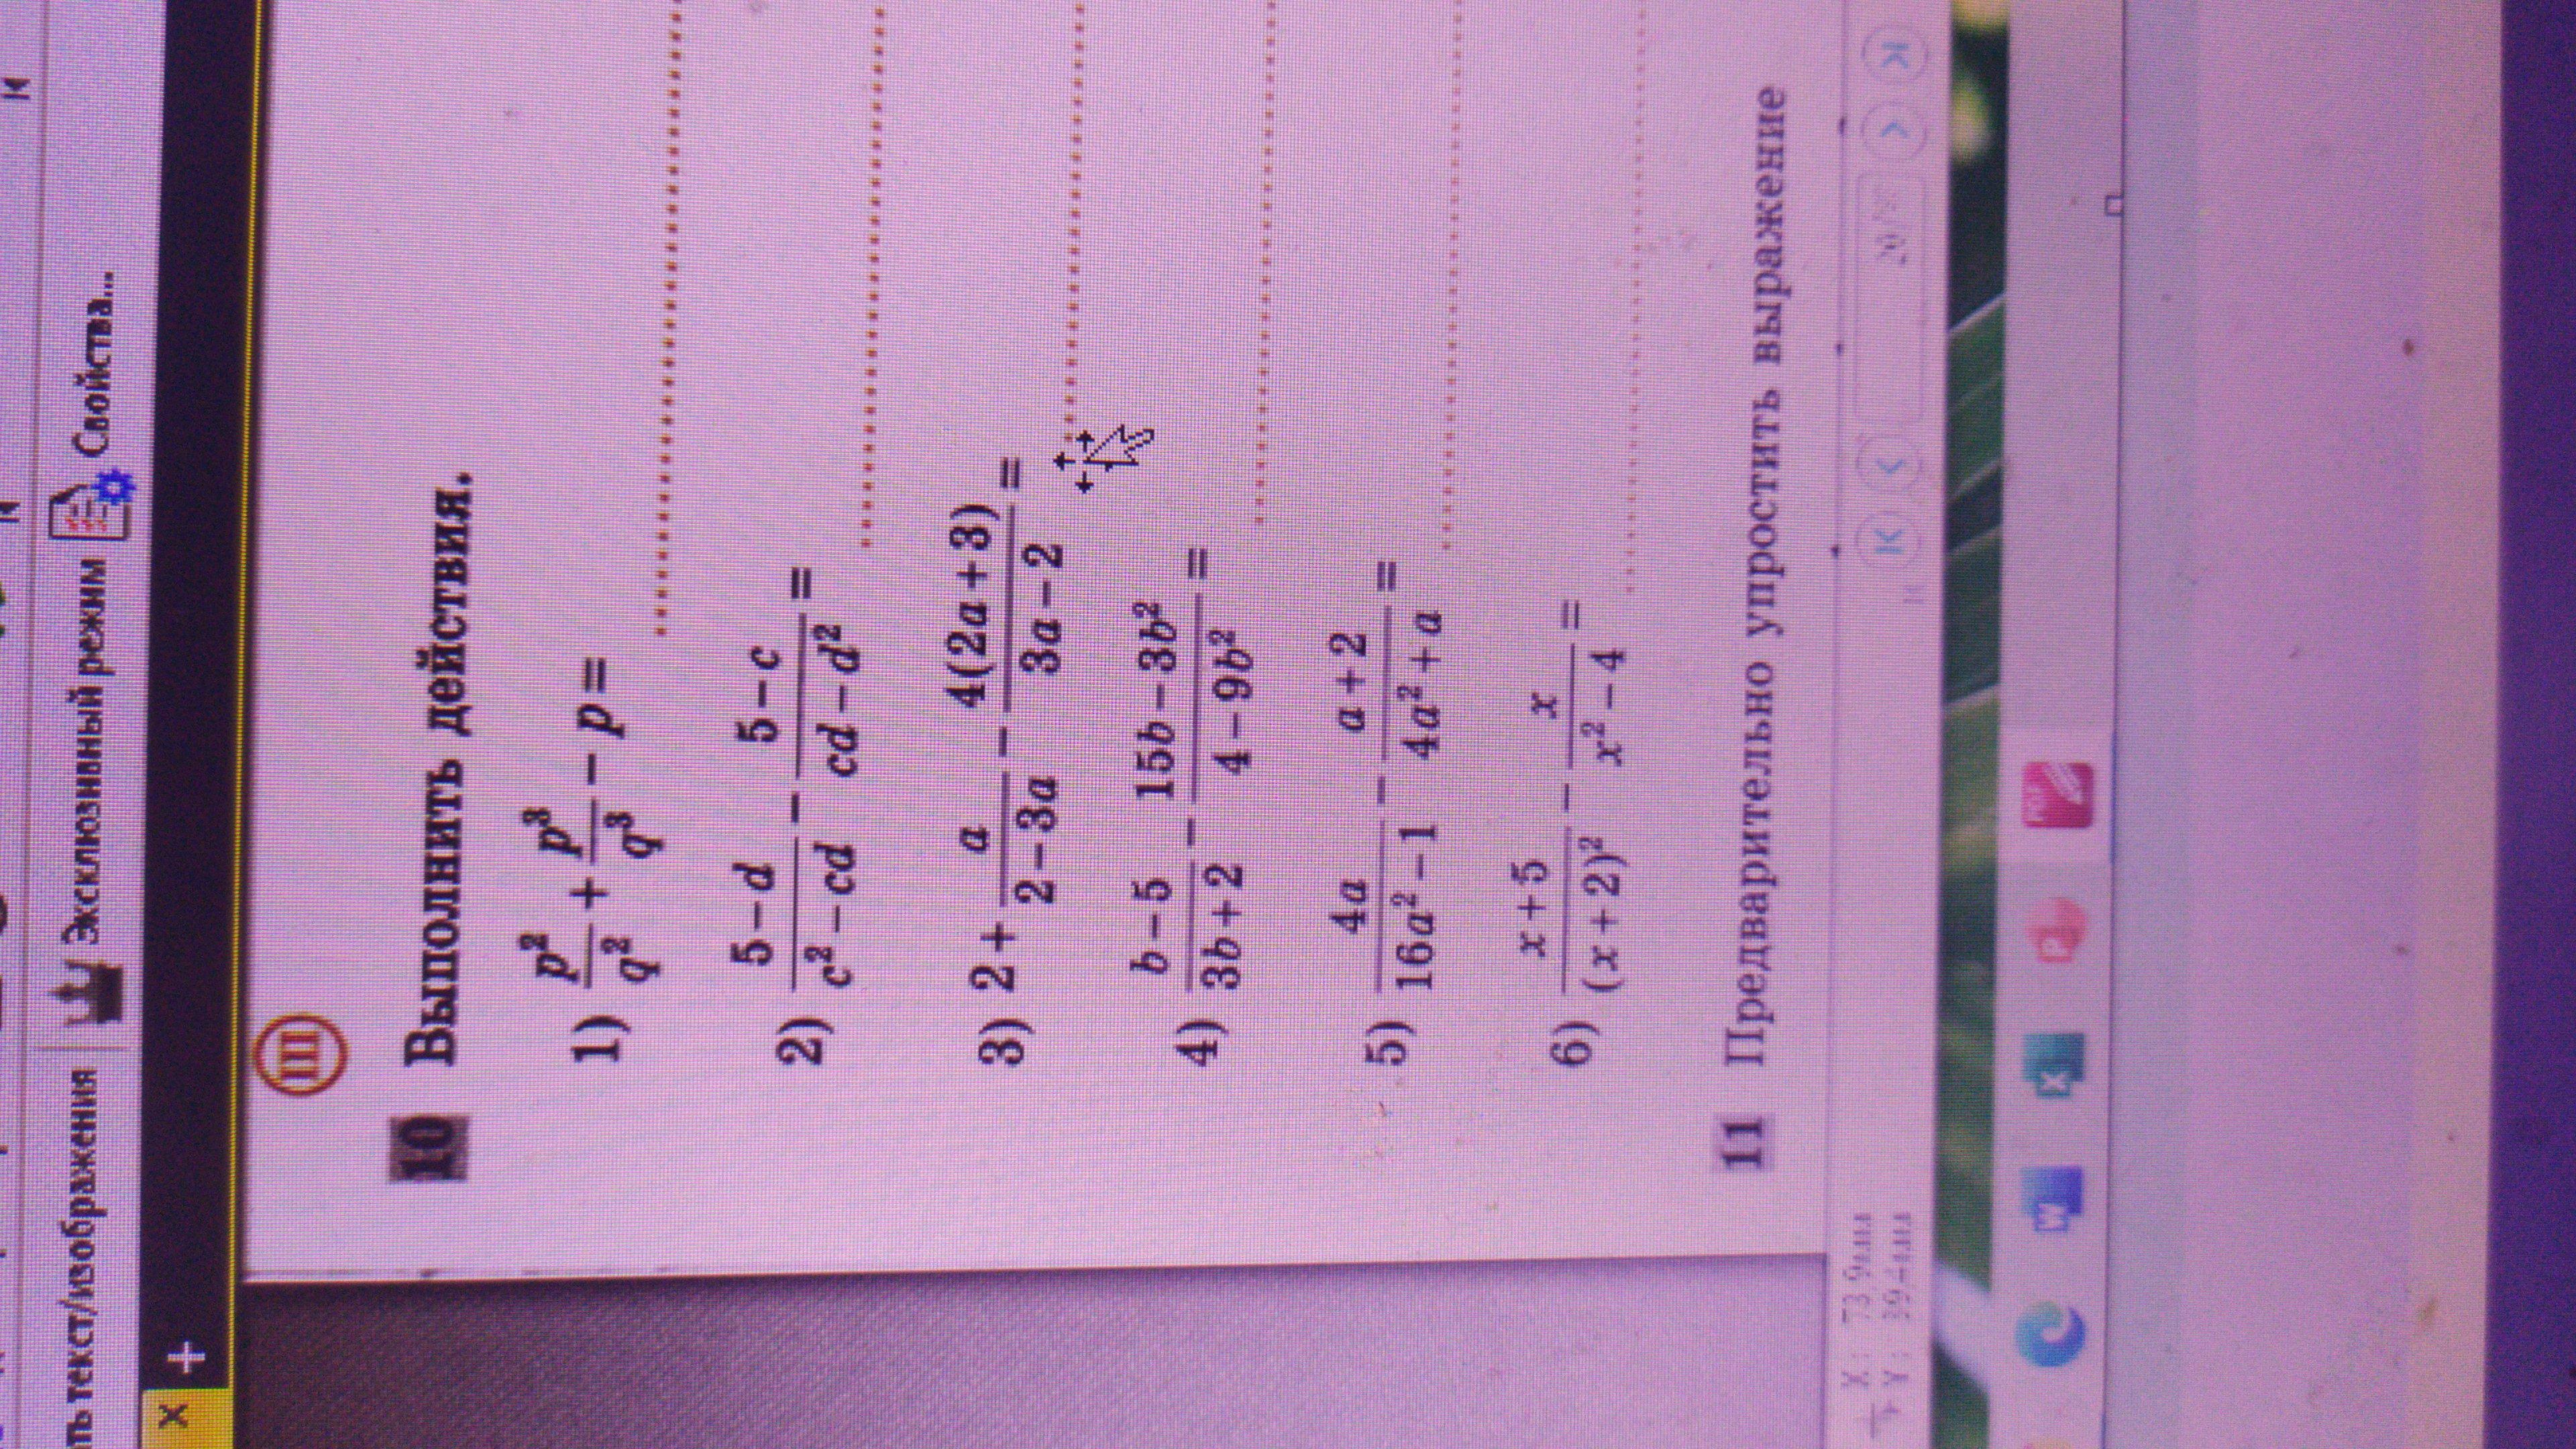 ть текст/изображения Эксклюзивный режим Свойства...
× +
III
10 Выполнить действия.
1) p²/q² + p³/q³ − p =
2) (5−d)/(c²−cd) − (5−c)/(cd−d²) =
3) 2 + a/(2−3a) − 4(2a+3)/(3a−2) =
4) (b−5)/(3b+2) − (15b−3b²)/(4−9b²) =
5) 4a/(16a²−1) − (a+2)/(4a²+a) =
6) (x+5)/(x+2)² − x/(x²−4) =
11 Предварительно упростить выражение
X: 73.9мм
Y: 39.4мм
W X P PDF